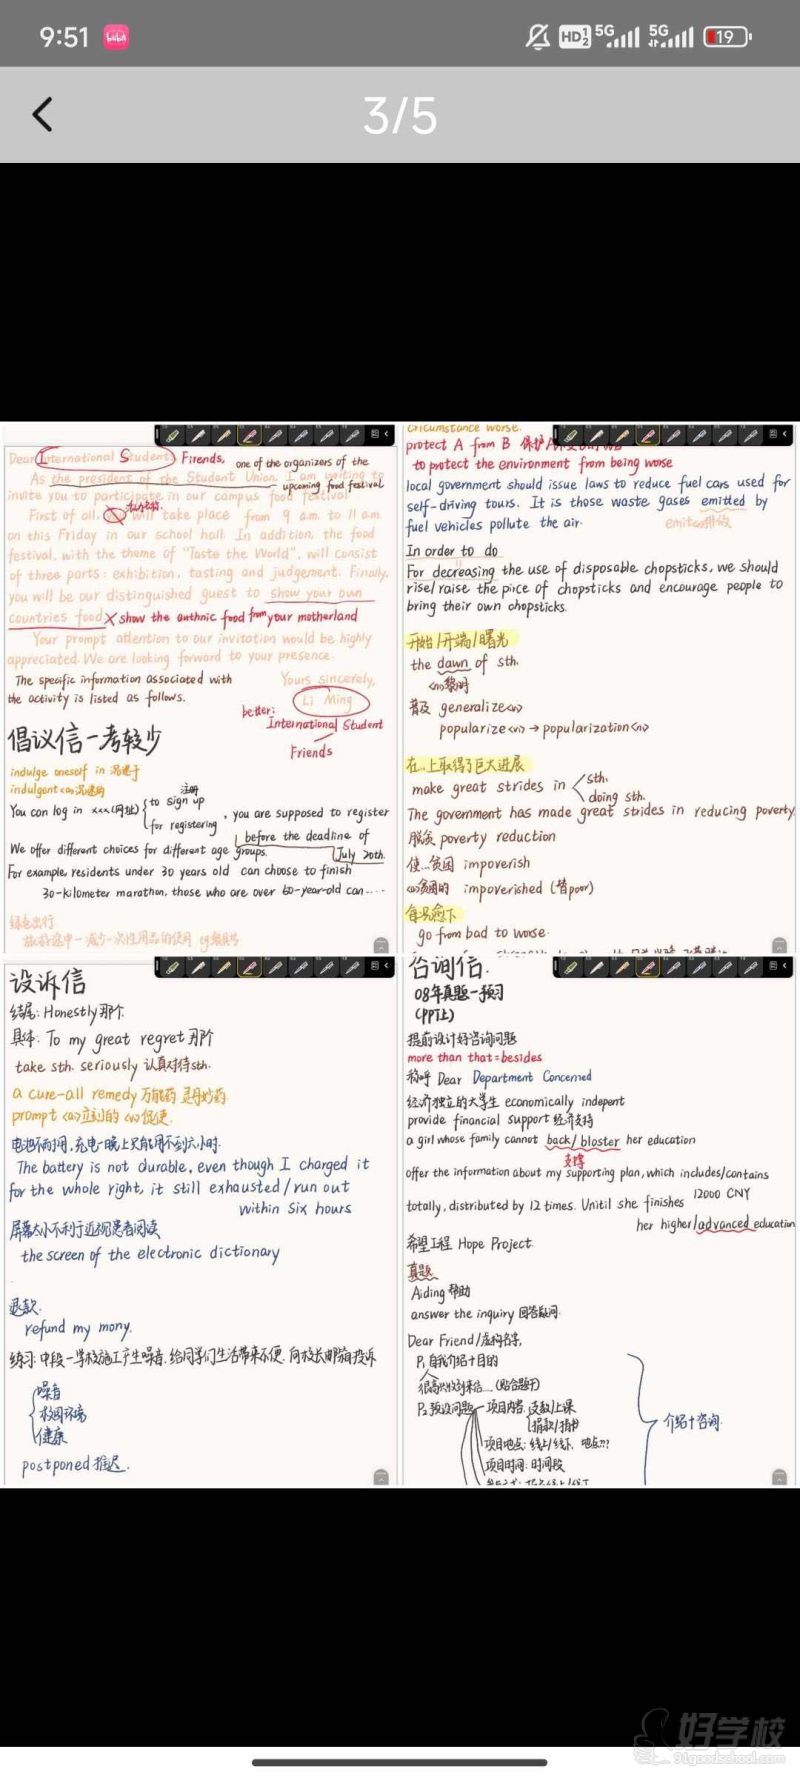 9:51
HD
5G
5G
19
3/5
Dear International Students, Firends,
one of the organizers of the
As the president of the Student Union, I am writing to
upcoming food festival
invite you to participate in our campus food festival
First of all, will take place from 9 a.m. to 11 a.m.
on this Friday in our school hall. In addition, the food
festival, with the theme of "Taste the World", will consist
of three parts: exhibition, tasting and judgement. Finally,
you will be our distinguished guest to show your own
countries food X show the authnic food from your motherland
Your prompt attention to our invitation would be highly
appreciated. We are looking forward to your presence.
The specific information associated with
the activity is listed as follows.
Yours sincerely,
Li Ming
better:
International Student
Friends
倡议信一考较少
indulge oneself in 沉迷于
indulgent <a> 沉迷的
注册
You can log in xxx(网址) to sign up
for registering
, you are supposed to register
before the deadline of
July 20th.
We offer different choices for different age groups.
For example, residents under 30 years old can choose to finish
30-kilometer marathon, those who are over 60-year-old can....
绿色出行
旅游途中一减少一次性用品的使用
circumstance worse.
protect A from B
to protect the environment from being worse
local government should issue laws to reduce fuel cars used for
self-driving tours. It is those waste gases emitted by
fuel vehicles pollute the air.
In order to do
For decreasing the use of disposable chopsticks, we should
rise/raise the pirce of chopsticks and encourage people to
bring their own chopsticks.
开始/开端/曙光
the dawn of sth.
<n>黎明
普及 generalize<v>
popularize<v> → popularization<n>
在...上取得了巨大进展
make great strides in
sth.
doing sth.
The government has made great strides in reducing poverty.
脱贫 poverty reduction
使...贫困 impoverish
<a>贫困的 impoverished (替poor)
每况愈下
go from bad to worse
投诉信
结尾: Honestly那个
具体: To my great regret 那个
take sth. seriously 认真对待sth.
a cure-all remedy 万能药 灵丹妙药
prompt <a>立刻的 <v>促使
电池不耐用,充电一晚上只能用不到六小时.
The battery is not durable, even though I charged it
for the whole night, it still exhausted/run out
within six hours
屏幕大小不利于近视患者阅读
the screen of the electronic dictionary
退款.
refund my mony.
练习: 中段一学校施工产生噪音,给同学们生活带来不便.向校长邮箱投诉
噪音
校园环境
健康
postponed 推迟.
咨询信.
08年真题一预习
(PPT上)
提前设计好咨询问题
more than that=besides
称呼 Dear Department Concerned
经济独立的大学生 economically indepent
provide financial support 经济支持
a girl whose family cannot back/bloster her education
支撑
offer the information about my supporting plan, which includes/contains
totally, distributed by 12 times. Unitil she finishes 12000 CNY
her higher/advanced education
希望工程 Hope Project
真题
Aiding 帮助
answer the inquiry 回答疑问.
Dear Friend/虚构名字,
P1 自我介绍+目的
很高兴收到来信...(贴合题干)
P2 预设问题
项目内容: 支教/上课
捐款/捐书
项目地点: 线上/线下, 地点??
项目时间: 时间段
介绍+咨询
好学校
91goodschool.com